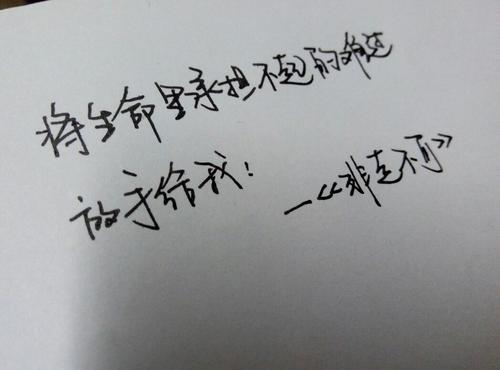 将生命里承担不起的难过
放手给我!
—《非走不可》